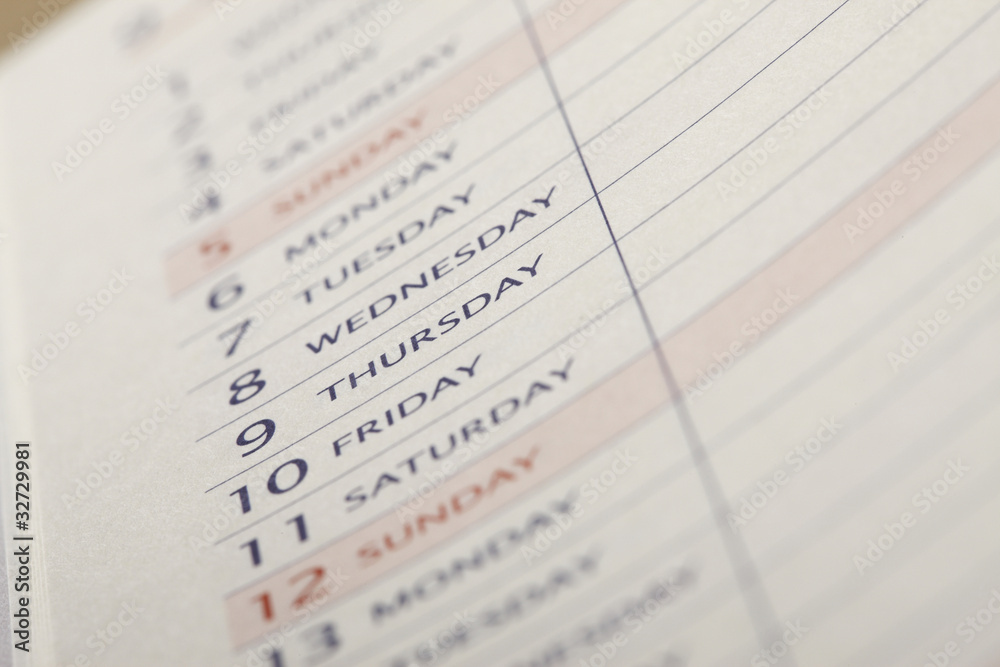 1
2
3
4 SATURDAY
5 SUNDAY
6 MONDAY
7 TUESDAY
8 WEDNESDAY
9 THURSDAY
10 FRIDAY
11 SATURDAY
12 SUNDAY
13 MONDAY
TUESDAY
Adobe Stock | #32729981